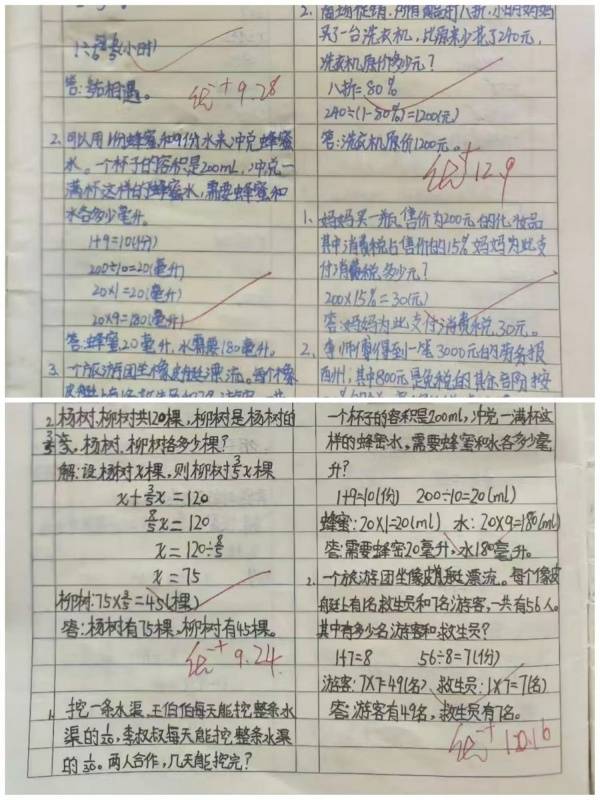 1÷ 5/6 = 6/5(小时)
答: 相遇。
优+ 9.28
2. 可以用1份蜂蜜和9份水来冲兑蜂蜜
水。一个杯子的容积是200mL,冲兑一
满杯这样的蜂蜜水,需要蜂蜜和
水各多少毫升。
1+9=10(份)
200÷10=20(毫升)
20×1=20(毫升)
20×9=180(毫升)
答:蜂蜜20毫升,水需要180毫升。
3. 一个旅游团坐橡皮艇漂流。每个橡
2. 商场促销,所有商品打八折,小明妈妈
买了一台洗衣机,比原来少花了240元,
洗衣机原价多少元?
八折=80%
240÷(1-80%)=1200(元)
答:洗衣机原价1200元。
优+ 12.9
1. 妈妈买一瓶售价为200元的化妆品
其中消费税占售价的15%妈妈为此支
付消费税多少元?
200×15%=30(元)
答:妈妈为此支付消费税30元。
2. 李师傅得到一笔3000元的劳务报
酬,其中800元是免税的,其余部分按
2. 杨树、柳树共120棵,柳树是杨树的
3/5,杨树、柳树各多少棵?
解:设杨树x棵,则柳树3/5x棵
x+3/5x=120
8/5x=120
x=120÷8/5
x=75
柳树:75×3/5=45(棵)
答:杨树有75棵,柳树有45棵。
优+ 9.24
1. 挖一条水渠,王伯伯每天能挖整条水
渠的1/20,李叔叔每天能挖整条水渠
的1/30。两人合作,几天能挖完?
一个杯子的容积是200ml,冲兑一满杯这
样的蜂蜜水,需要蜂蜜和水各多少毫
升?
1+9=10(份) 200÷10=20(ml)
蜂蜜:20×1=20(ml) 水:20×9=180(ml)
答:需要蜂蜜20毫升,水180毫升。
2. 一个旅游团坐橡皮艇漂流。每个橡皮
艇上有1名救生员和7名游客,一共有56人。
其中有多少名游客和救生员?
1+7=8 56÷8=7(份)
游客:7×7=49(名) 救生员:1×7=7(名)
答:游客有49名,救生员有7名。
优+ 10.16